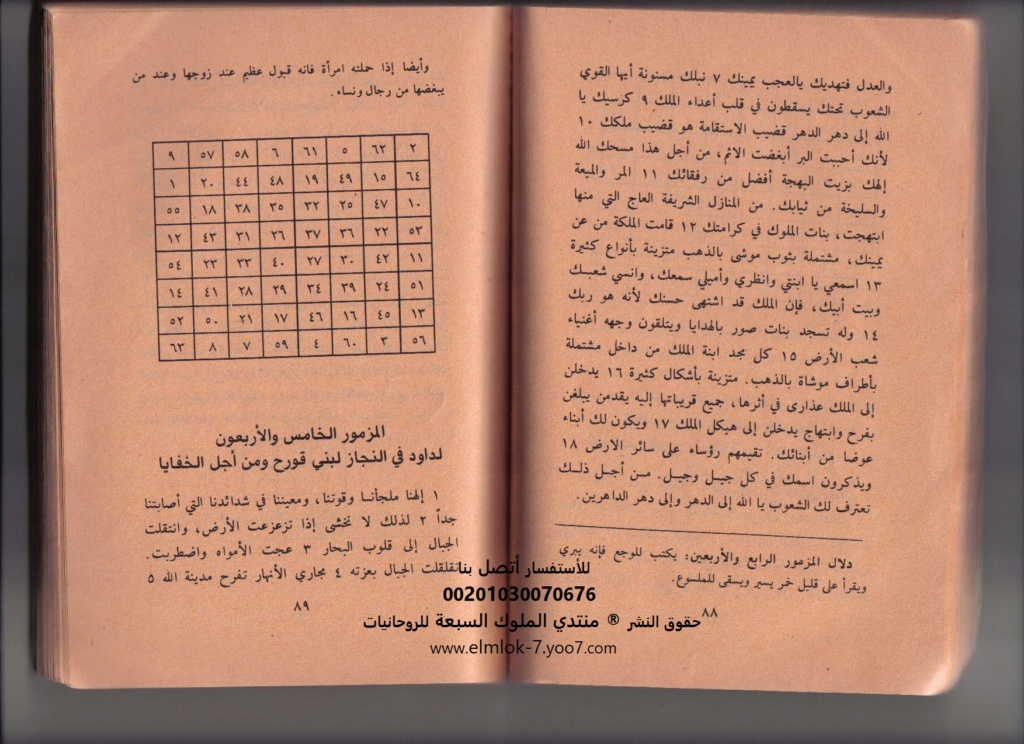 والعدل فتهديك يالعجب يمينك ٧ نبلك مسنونة أيها القوي
الشعوب تحتك يسقطون في قلب أعداء الملك ٩ كرسيك يا
الله إلى دهر الدهر قضيب الاستقامة هو قضيب ملكك ١٠
لأنك أحببت البر أبغضت الاثم، من أجل هذا مسحك الله
إلهك بزيت البهجة أفضل من رفقائك ١١ المر والميعة
والسليخة من ثيابك. من المنازل الشريفة العاج التي منها
ابتهجت، بنات الملوك في كرامتك ١٢ قامت الملكة من عن
يمينك، مشتملة بثوب موشى بالذهب متزينة بأنواع كثيرة
١٣ اسمعي يا ابنتي وانظري وأميلي سمعك، وانسي شعبك
وبيت أبيك، فإن الملك قد اشتهى حسنك لأنه هو ربك
١٤ وله تسجد بنات صور بالهدايا ويتلقون وجهه أغنياء
شعب الأرض ١٥ كل مجد ابنة الملك من داخل مشتملة
بأطراف موشاة بالذهب. متزينة بأشكال كثيرة ١٦ يدخلن
إلى الملك عذارى في أثرها، جميع قريباتها إليه يقدمن يبلغن
بفرح وابتهاج يدخلن إلى هيكل الملك ١٧ ويكون لك أبناء
عوضا من أبنائك. تقيمهم رؤساء على سائر الارض ١٨
ويذكرون اسمك في كل جيل وجيل. من أجل ذلك
تعترف لك الشعوب يا الله إلى الدهر وإلى دهر الداهرين.
دلال المزمور الرابع والأربعين: يكتب للوجع فإنه يبري
ويقرأ على قليل خمر يسير ويسقى للملسوع.
٨٨
وأيضا إذا حملته امرأة فانه قبول عظيم عند زوجها وعند من
يبغضها من رجال ونساء.
٢ ٦٢ ٥ ٦١ ٦ ٥٨ ٥٧ ٩
٦٤ ١٥ ٤٩ ١٩ ٤٨ ٤٤ ٢٠ ١
١٠ ٤٧ ٢٥ ٣٢ ٣٥ ٣٨ ١٨ ٥٥
٥٣ ٢٢ ٣٦ ٣٧ ٢٦ ٣١ ٤٣ ١٢
١١ ٤٢ ٣٠ ٢٧ ٤٠ ٣٣ ٢٣ ٥٤
٥١ ٢٤ ٣٩ ٣٤ ٢٩ ٢٨ ٤١ ١٤
١٣ ٤٥ ١٦ ٤٦ ١٧ ٢١ ٥٠ ٥٢
٥٦ ٣ ٦٠ ٤ ٥٩ ٧ ٨ ٦٣
المزمور الخامس والأربعون
لداود في النجاز لبني قورح ومن أجل الخفايا
١ إلهنا ملجأنا وقوتنا، ومعيننا في شدائدنا التي أصابتنا
جداً ٢ لذلك لا نخشى إذا تزعزعت الأرض، وانتقلت
الجبال إلى قلوب البحار ٣ عجت الأمواه واضطربت.
تقلقلت الجبال بعزته ٤ مجاري الأنهار تفرح مدينة الله ٥
٨٩
للأستفسار أتصل بنا
00201030070676
حقوق النشر ® منتدي الملوك السبعة للروحانيات
www.elmlok-7.yoo7.com